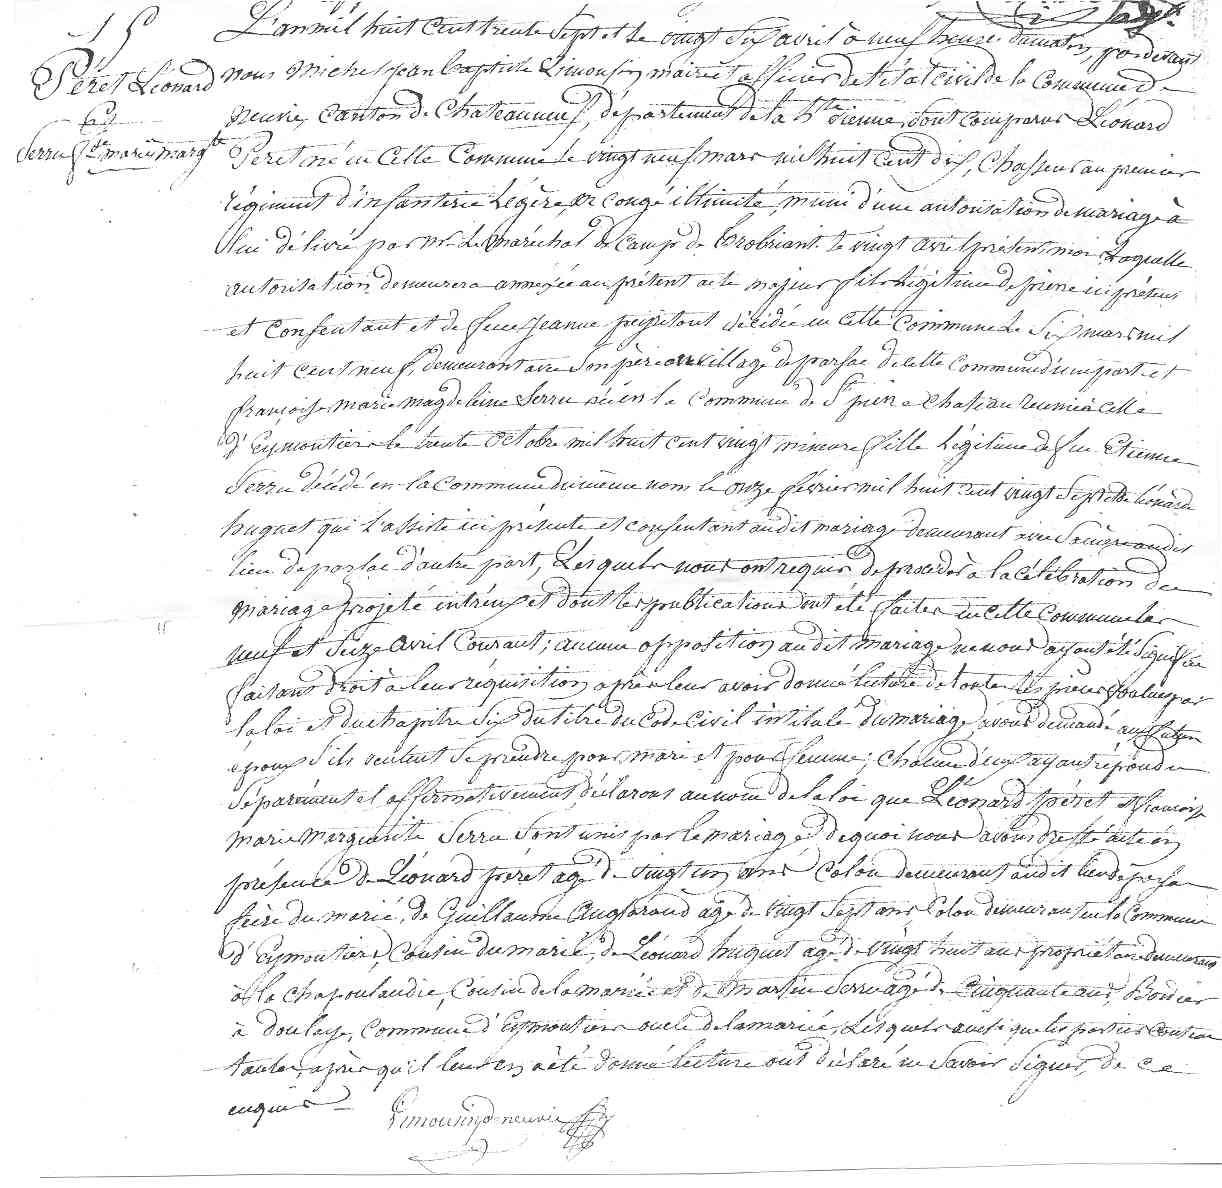 15
Péret Léonard
Et
Serru f.se marie marg.te
L'an mil huit cent trente Sept et le vingt Six avril à neuf heures du matin, pardevant
nous Michel Jean Baptiste Limousin, maire et officier de l'état civil de la Commune de
Neuvic, Canton de Chateauneuf, département de la h.te vienne, sont comparus Léonard
Péret né en Cette Commune le vingt neuf mars mil huit cent dix, Chasseur au premier
régiment d'infanterie Légère, en congé illimité, muni d'une autorisation de mariage à
lui délivré par mr. le maréchal de camp de le vingt avril présent mois Laquelle
autorisation demeurera annéxée au présent acte majeur fils légitime de pierre ici présent
et Consentant et de feue Jeanne décédée en cette Commune Le Six mars mil
huit Cent neuf, demeurant avec Son père au village de parsac de cette Commune d'une part et
françoise marie magdeleine Serru née en la Commune de St pierre Chateau reunie à celle
d'Eymoutiers le trente Octobre mil huit cent vingt mineure fille Légitime de feu Etienne
Serru décédé en la Commune du même nom le onze février mil huit cent vingt Sept et de Léonarde
huguet qui l'assiste ici présente et consentant audit mariage demeurant avec Sa mère audit
lieu de parsac d'autre part, Lesquels nous ont requis de procéder à la célébration du
Mariage projeté entr'eux et dont les publications ont été faites en cette commune les
neuf et Seize avril Courant; aucune opposition audit mariage ne nous ayant été Signifiée
faisant droit à leur réquisition après leur avoir donné lecture de toutes les pièces voulues par
la loi et du chapitre Six du titre du Code Civil intitulé du mariage, avons demandé aux futurs
époux S'ils veulent Se prendre pour mari et pour femme; chacun d'eux ayant répondu
Séparément et affirmativement, déclarons au nom de la loi que Léonard péret et françoise
Marie Marguerite Serru Sont unis par le mariage de quoi nous avons dressé acte en
présence de Léonard péret agé de vingt un ans Colon demeurant audit lieu de parsac
frère du marié, de Guillaume agé de vingt Sept ans, Colon demeurant en la Commune
d'Eymoutiers, Cousin du marié, de Léonard huguet agé de vingt huit ans propriétaire demeurant
à la chapoulaudie, Cousin de la mariée et de Martin Serru agé de Cinquante ans, Bordier
à Commune d'Eymoutiers oncle de la mariée, Lesquels ainsi que les parties Contrac
tantes, après qu'il leur en a été donné lecture ont déclaré ne Savoir Signer, de ce
enquis
Limousin de neuvic